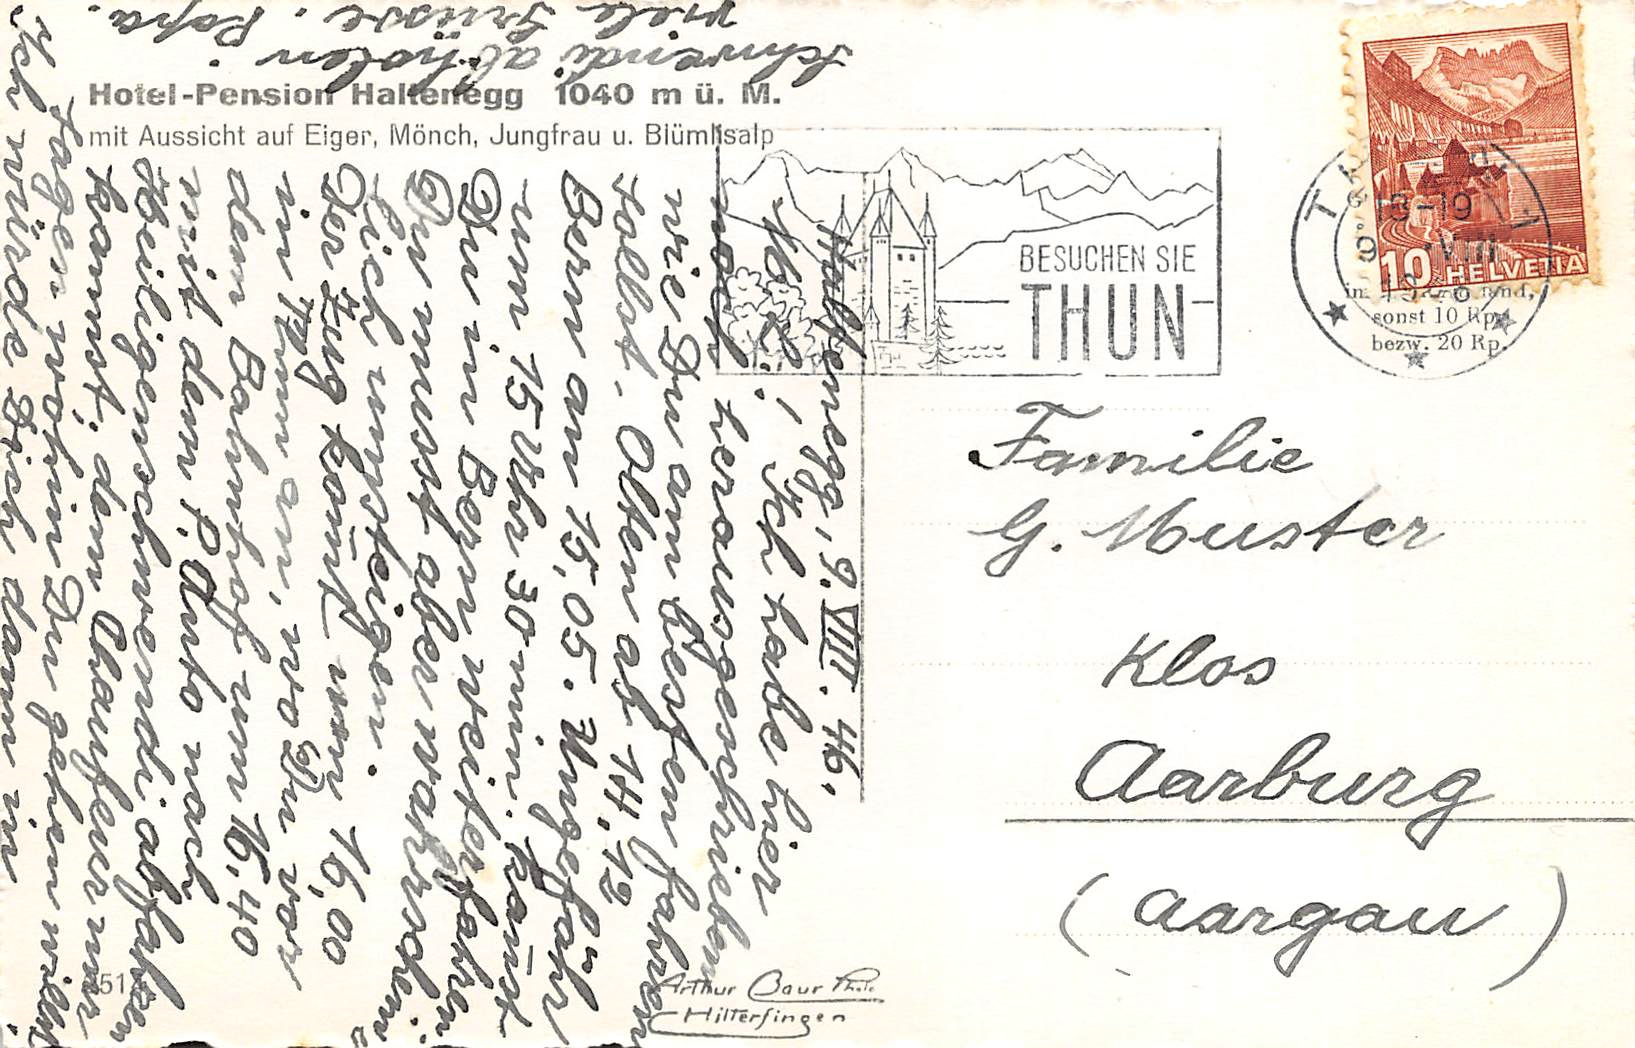 Hotel-Pension Haltenegg 1040 m ü. M.
mit Aussicht auf Eiger, Mönch, Jungfrau u. Blümlisalp
BESUCHEN SIE
THUN
THUN 1
18-19
VIII
10 HELVETIA
sonst 10 Rp.
bezw. 20 Rp.
Haltenegg, 9. VIII. 46.
Ich habe hier
noch herausgeschrieben
wie Du am besten fahren
sollst. Olten ab 14,12
Bern an 15,05. Ungefähr
um 15 Uhr 30 min. kanst
Du in Bern weiterfahren
Du musst aber warscheine
lich umsteigen.
Der Zug komt um 16,00
in Thun an, wo Du vor
dem Bahnhof um 16,40
mit dem P. Auto nach
Heiligenschwendi abfahren
kannst, dem Chauffeur nur
sagen wohin Du gehen willst.
Ich würde Dich dann in
Schwendi abholen
viele Grüsse. Papa.
Familie
G. Muster
Klos
Aarburg
(Aargau)
Arthur Baur Phot.
Hilterfingen